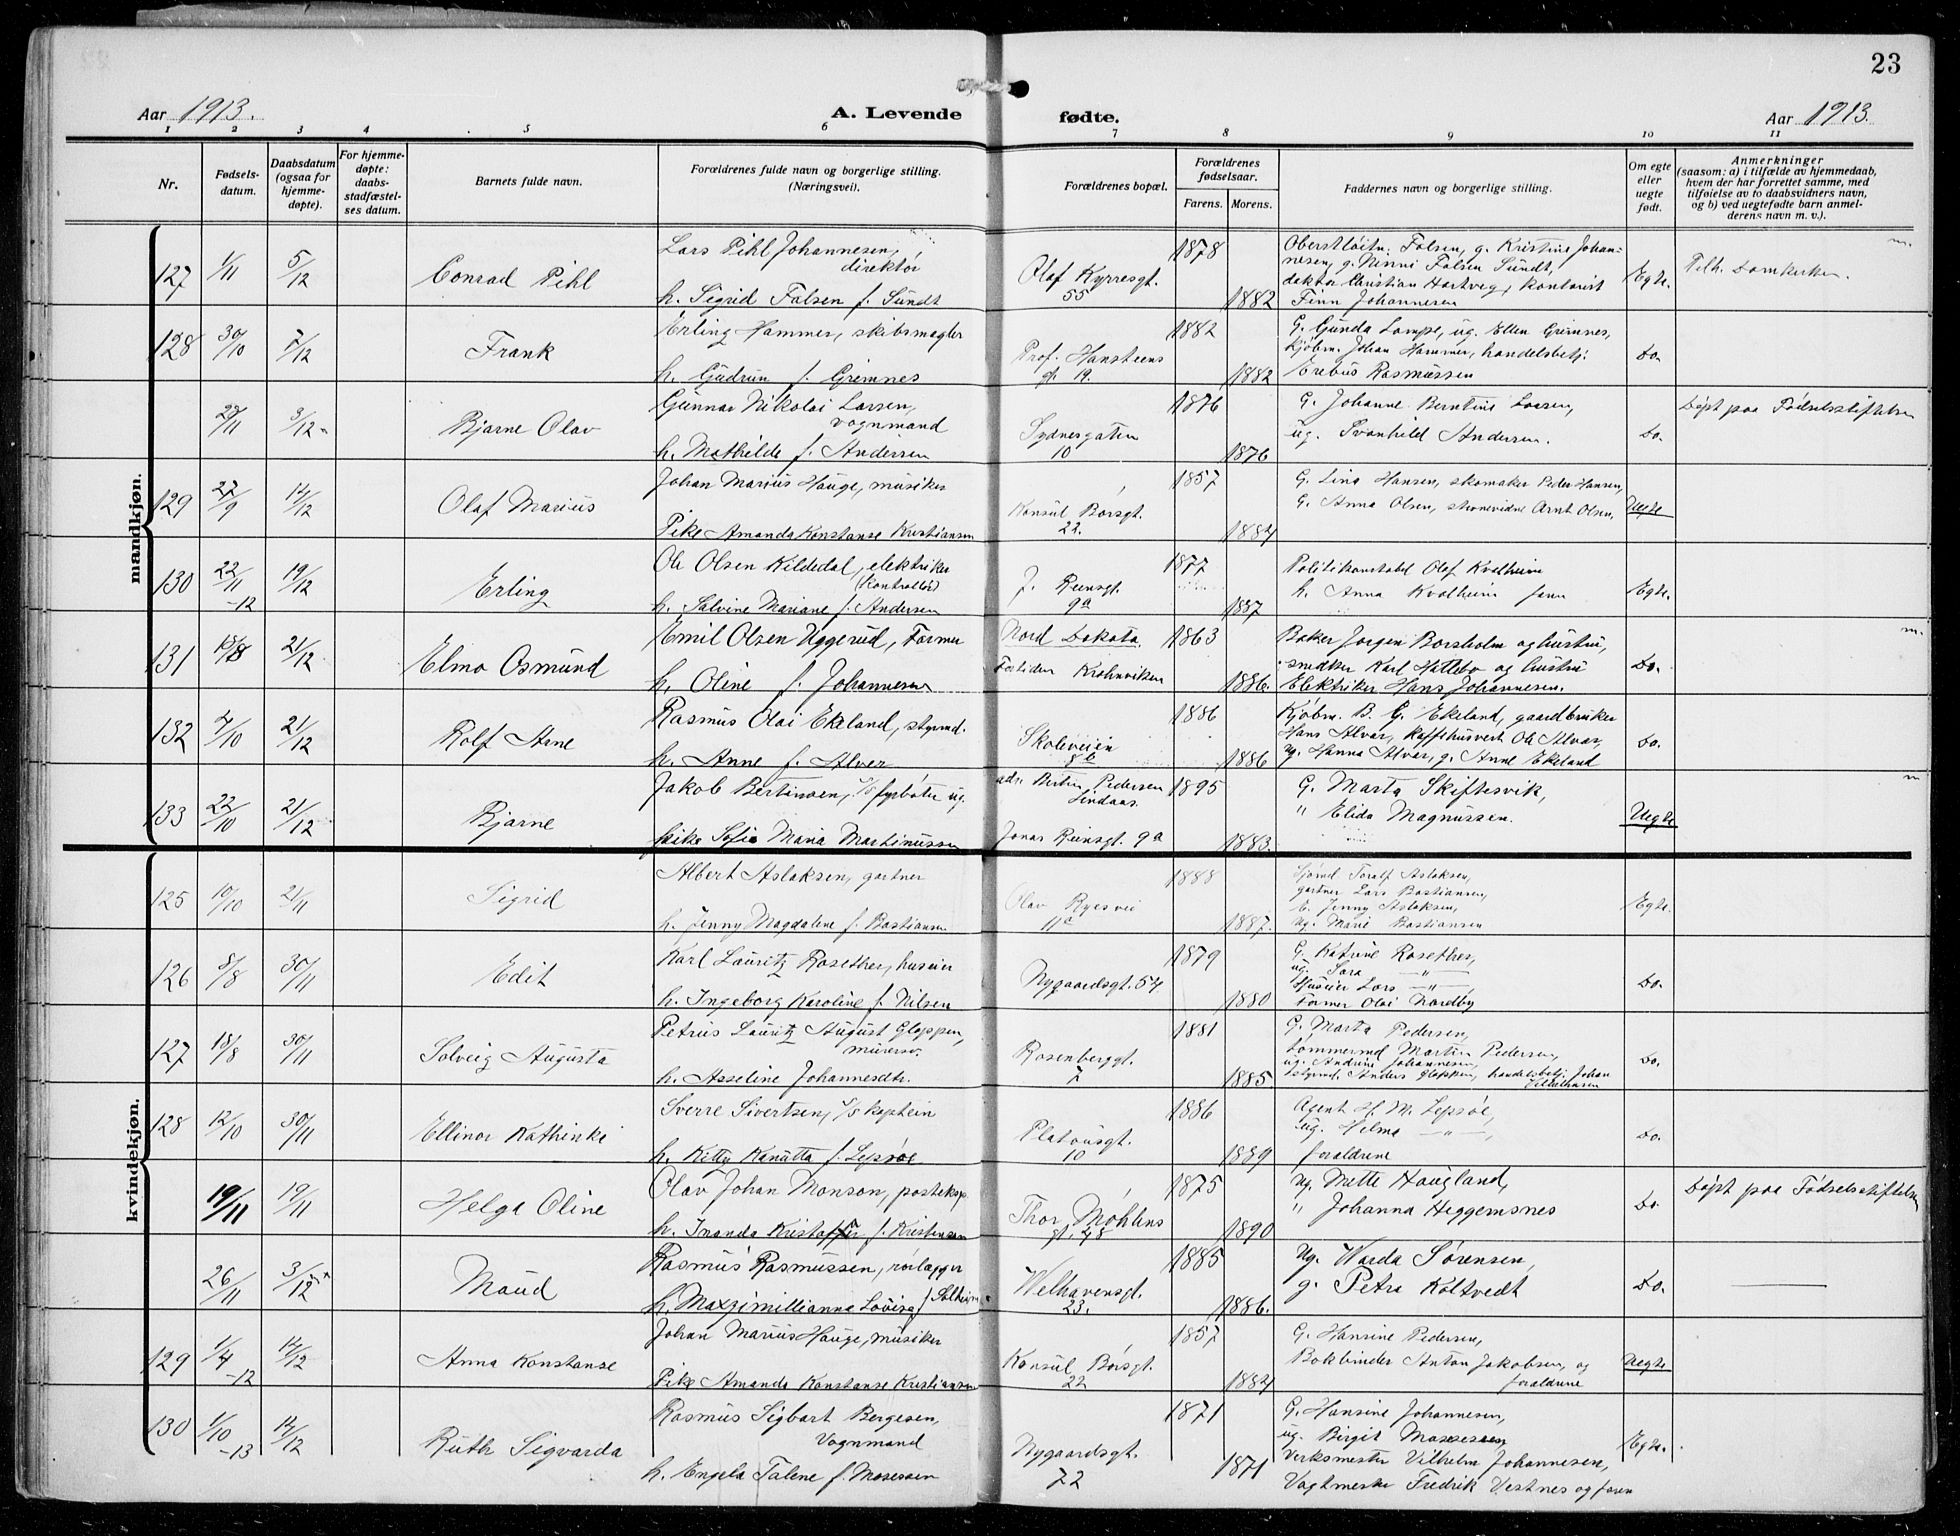 23
Aar 1913.
A. Levende fødte.
Aar 1913.
1 2 3 4 5 6 7 8 9 10 11
Nr.
Fødsels-
datum.
Daabsdatum
(ogsaa for
hjemme-
døpte).
For hjemme-
døpte:
daabs-
stadfæstel-
ses datum.
Barnets fulde navn.
Forældrenes fulde navn og borgerlige stilling.
(Næringsvei).
Forældrenes bopæl.
Forældrenes
fødselsaar.
Farens. Morens.
Faddernes navn og borgerlige stilling.
Om egte
eller
uegte
født.
Anmerkninger
(saasom: a) i tilfælde av hjemmedaab,
hvem der har forrettet samme, med
tilføielse av to daabsvidners navn,
og b) ved uegtefødte barn anmel-
derens navn m. v.).
mandkjøn.
127 1/11 5/12 Conrad Pihl
Lars Pihl Johannesen,
direktør
h. Sigrid Falsen f. Sundt
Olaf Kyrresgt.
55
1878
1882
Oberstløitn. Falsen, g. Kristine Johan-
nesen, g. Minni Falsen Sundt,
doktor Christian Hartvig, kontorist
Finn Johannesen
Egte.
Tilh. Domkirken.
128 30/10 /12 Frank
Erling Hammer, skibsmægler
h. Gudrun f. Grimnes
Prof. Hansteens
gt. 19.
1882
1882
G. Gunda Lampe, ug. Ellen Grimnes,
kjøbm. Johan Hammer, handelsbetj.
Erebus Rasmussen
Do.
/11 3/12 Bjarne Olav
Gunnar Nikolai Larsen,
vognmand
h. Mathilde f. Andersen
Sydnesgaten
10
1876
1876
G. Johanne Berntine Larsen,
ug. Svanhild Andersen.
Do.
Døpt paa Fødselsstiftelsen
129 27/9 14/12 Olaf Marius
Johan Marius Hauge, musiker
Pike Amanda Konstanse Kristiansen
Konsul Børsgt.
22.
1857
1884
G. Lina Hansen, skomaker Peder Hansen,
G. Anna Olsen, Arnt Olsen.
Uegte
130 22/11 -12 19/12 Erling
Ole Olsen Kildedal, elektriker
(kontrollør)
h. Salvine Mariane f. Andersen
J. Reinsgt.
9a
1877
1887
Politikonstabel Olaf Kvalheim
h. Anna Kvalheim
Egte.
131 18/8 21/12 Elmo Osmund
Emil Olsen Uggerud, Farmer
h. Oline f. Johannesen
Nord Dakota
Fortiden Krohnviken
1863
1886.
Baker Jørgen Borsholm og hustru,
snedker Karl Hatlebø og hustru
Elektriker Hans Johannesen.
Do.
132 7/10 21/12 Rolf Arne
Rasmus Olai Ekeland, styrmd.
h. Anne f. Alver
Skoleveien
8b
1886
1886
Kjøbm. B. G. Ekeland, gaardbruker
Hans Alver, kaffehusvert Ole Alver,
ug. Hanna Alver, g. Anne Ekeland
Do.
133 22/10 21/12 Bjarne
Jakob Bertinsen, fyrbøter ug.
pike Sofie Maria Martinussen
adr. Bertin Pedersen
Lindaas.
Jonas Reinsgt. 9a
1895
1883.
G. Marta Skiftesvik,
" Elida Magnussen.
Uegte
kvindekjøn.
125 19/10 21/11 Sigrid
Albert Aslaksen, gartner
h. Jenny Magdalene f. Bastiansen
Olav Ryesvei
11c
1888
1887.
Sjømd Toralf Aslaksen,
gartner Lars Bastiansen,
E. Jenny Aslaksen,
ug. Marie Bastiansen
Egte.
126 8/8 30/11 Edit
Karl Lauritz Rosether, huseier
h. Ingeborg Karoline f. Nilsen
Nygaardsgt. 54
1879
1880
G. Katrine Rosether,
ug. Sara —"—
Huseier Lars —"—,
Farmer Olai Nordby
Do.
127 18/8 30/11 Solveig Augusta
Petrus Lauritz August Gloppen,
murersv.
h. Asseline Johannesdtr.
Rosenberggt.
7
1881
1885
G. Marta Pedersen,
Tømmermd Martin Pedersen,
ug. Andrine Johannesen,
styrmd. Anders Gloppen, handelsbetj. Johan
Vilhelmsen
Do.
128 12/10 30/11 Ellinor Kathinki
Sverre Sivertsen, kaptein
h. Kitty Kanutta f. Lepsøe
Platousgt.
10
1886
1889
Agent H. M. Lepsøe,
ug. Helma —"—,
forældrene
Do.
19/11 19/11 Helga Oline
Olav Johan Monson, posteksp.
h. Inanda Kristoffer f. Kristensen
Thor Møhlens
gt. 48
1875
1890
Ug. Mette Haugland,
" Johanna Heggemsnes
Do.
Døpt paa Fødselsstiftelsen
26/11 3/12 Maud
Rasmus Rasmussen, rørlægger
h. Maxgimillianna Lovisa f. Solheim
Welhavensgt.
23.
1885
1886.
Ug. Warda Sørensen,
g. Petra Koltvedt
Do.
129 1/4 -12 14/12 Anna Konstanse
Johan Marius Hauge, musiker
Pike Amanda Konstanse Kristiansen
Konsul Børsgt.
22
1857
1884
G. Hansine Pedersen,
Bokbinder Anton Jakobsen, og
forældrene
Uegte
130 1/10 -13 14/12 Ruth Sigvarda
Rasmus Sigbart Bergesen,
Vognmand
h. Engela Talene f. Mosessen
Nygaardsgt.
72
1871
1871
G. Hansine Johannesen,
ug. Birgit Mosessen,
Verksmester Vilhelm Johannesen,
Vagtmester Fredrik Vestnes og faren
Egte.